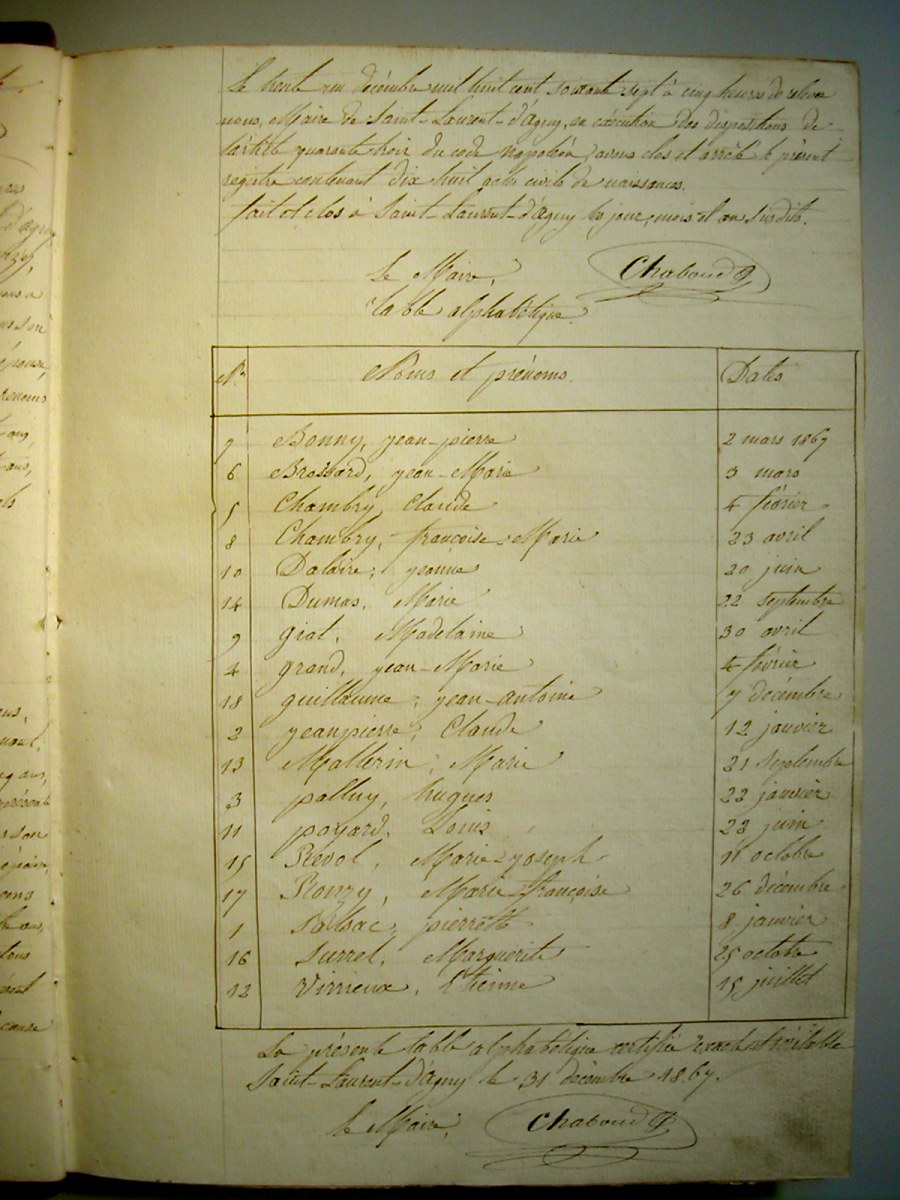 Le trente un décembre mil huit cent soixante sept à cinq heures de relevée
nous, Maire de Saint-Laurent-d'agny, en exécution des dispositions de
l'article quarante trois du code napoléon, avons clos et arrêté le présent
registre contenant dix huit actes civils de naissances.
fait et clos à Saint-Laurent-d'agny les jour, mois et an susdits.
Le Maire, Chaboud
Table alphabétique
Nos Noms et prénoms Dates
7 Bonny, jean-pierre 2 mars 1867
6 Brossard, jean-Marie 3 mars
5 Chambry Claude 4 février
8 Chambry, françoise-Marie 23 avril
10 Dalaire, jeanne 20 juin
14 Dumas, Marie 22 septembre
9 giat, Madelaine 30 avril
4 grand, jean-Marie 4 février
18 guillaume, jean-antoine 7 décembre
2 jeanpierre, Claude 12 janvier
13 Mallerin, Marie 21 septembre
3 palluy, hugues 22 janvier
11 poyard, Louis 22 juin
15 Prevol, Marie-joseph 11 octobre
17 Marie françoise 26 décembre
1 pierrette 8 janvier
16 Surrel, Marguerite 25 octobre
12 Virrieux, Etienne 15 juillet
La présente table alphabétique certifiée exacte et véritable
Saint-Laurent-d'agny le 31 décembre 1867.
Le Maire, Chaboud